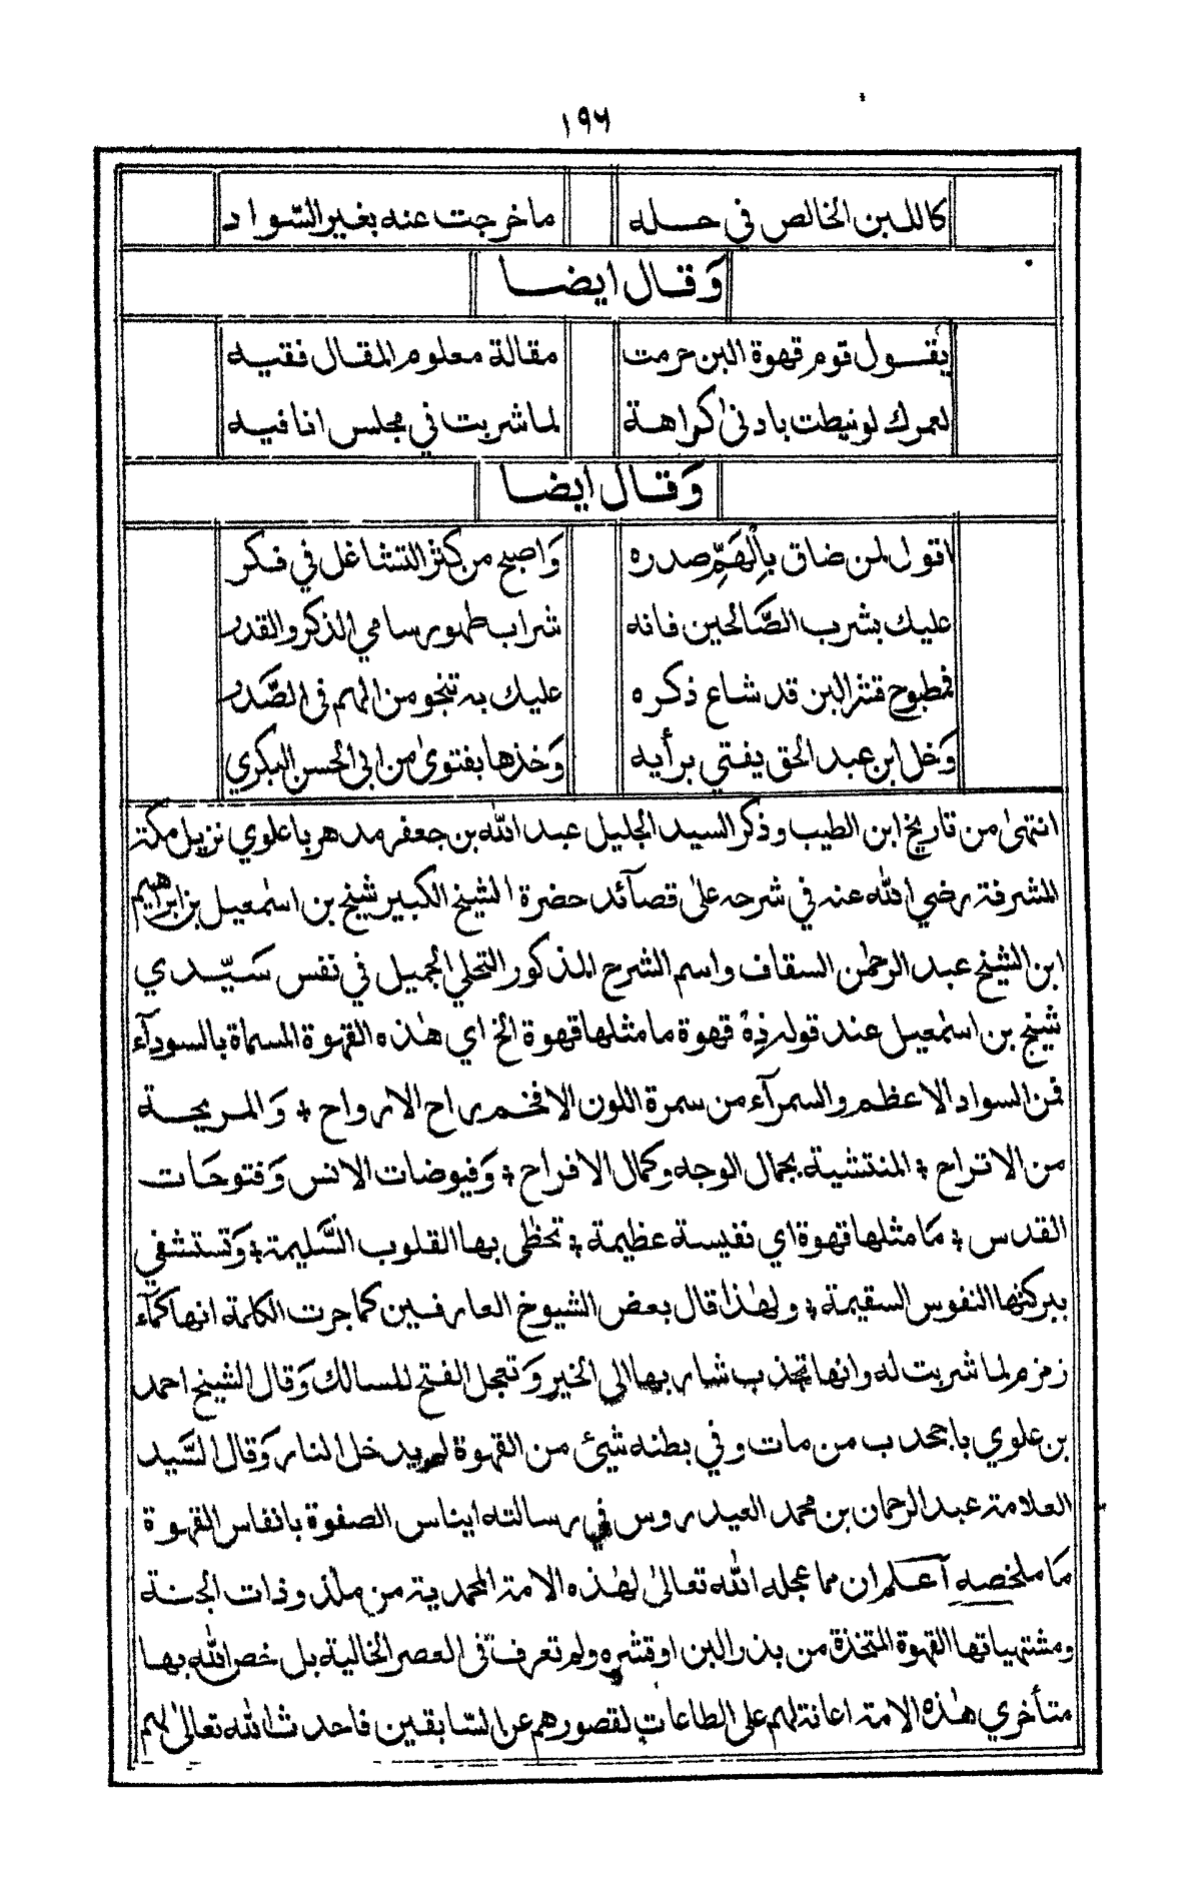 ١٩٦
كاللبن الخالص في حله ماخرجت عنه بغير السّواد
وَقال ايضا
يقول قوم قهوة البن حرمت مقالة معلوم المقال فقيه
لعمرك لو نيطت بادنىٰ كراهة لما شربت في مجلس انا فيه
وَقال ايضا
اقول لمن ضاق بِالْهَمِّ صدره وَاصبح من كثر التشاغل في فكر
عليك بشرب الصَّالحين فانه شراب طهور سامي الذكر والقدر
فمطبوح قشر البن قد شاع ذكره عليك به تنجو من الهم في الصَّدر
وَخل ابن عبد الحق يفتي برأيه وَخذها بفتوىٰ من ابي الحسن البكري
انتهىٰ من تاريخ ابن الطيب وذكر السيد الجليل عبد الله بن جعفر مدهر باعلوي نزيل مكة
المشرفة رضي الله عنه في شرحه علىٰ قصآئد حضرة الشيخ الكبير شيخ بن اسمٰعيل بن ابراهيم
ابن الشيخ عبد الرحمٰن السقاف واسم الشرح المذكور التحلي الجميل في نفس سَيّدي
شيخ بن اسمٰعيل عند قوله ذهْ قهوة ما مثلها قهوة الخ اي هٰذه القهوة المسماة بالسودآء
فمن السواد الاعظم والسمرآء من سمرة اللون الافخم راح الارواح ؞ وَالمريحة
من الاتراح ؞ المنتشية بجمال الوجه وكمال الافراح ؞ وَفيوضات الانس وَفتوحَات
القدس ؞ مَا مثلها قهوة اي نفيسة عظيمة ؞ تحظٰى بها القلوب السَّليمة ؞ وَتستشفي
ببركتها النفوس السقيمة ؞ ولهٰذا قال بعض الشيوخ العارفين كما جرت الكلمة انها كمآء
زمزم لما شربت له وانها تجذب شاربها الي الخير وَتعجل الفتح للسالك وَقال الشيخ احمد
بن علوي باجحدب من مات وفي بطنه شيئ من القهوة لم يدخل النار وَقال السَّيد
العلامة عبد الرحمان بن محمد العيدروس في رسالته ايناس الصفوة بانفاس القهوة
مَا ملخصه آعلم ان مما عجله الله تعالىٰ لهٰذه الامة المحمدية من ملذوذات الجنة
ومشتهياتها القهوة المتخذة من بذر البن او قشره ولم تعرف في العصر الخالية بل خص الله بها
متأخري هٰذه الامة اعانة لهم علي الطاعات لقصورهم عن السّابقين فاحدث الله تعالىٰ لهم